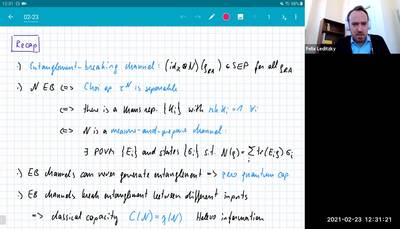 12:31
02-23
Recap
·) Entanglement-breaking channel: (id_R ⊗ N)(ρ_RA) ∈ SEP for all ρ_RA
·) N EB ⟺ Choi op τ^N is separable
⟺ there is a Kraus rep. {K_i} with rk K_i = 1 ∀i
⟺ N is a measure-and-prepare channel:
∃ POVM {E_i} and states {σ_i} s.t. N(ρ) = Σ_i tr(E_i ρ) σ_i
·) EB channels can never generate entanglement ⟹ zero quantum cap.
·) EB channels break entanglement between different inputs
⟹ classical capacity C(N) = χ(N) Holevo information
Felix Leditzky
2021-02-23 12:31:21